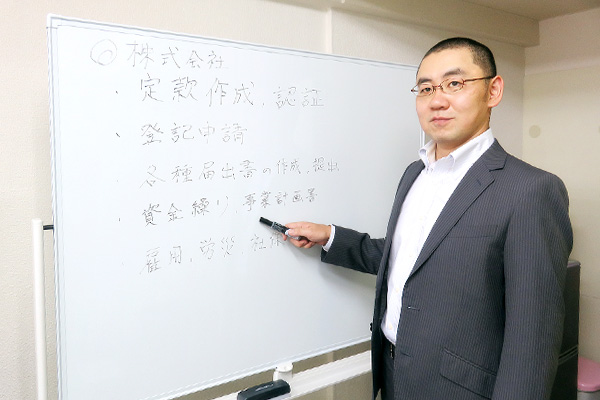 ◎ 株式会社
・定款作成、認証
・登記申請
・各種届出書の作成、提出
・資金繰り、事業計画書
雇用、労災、社保